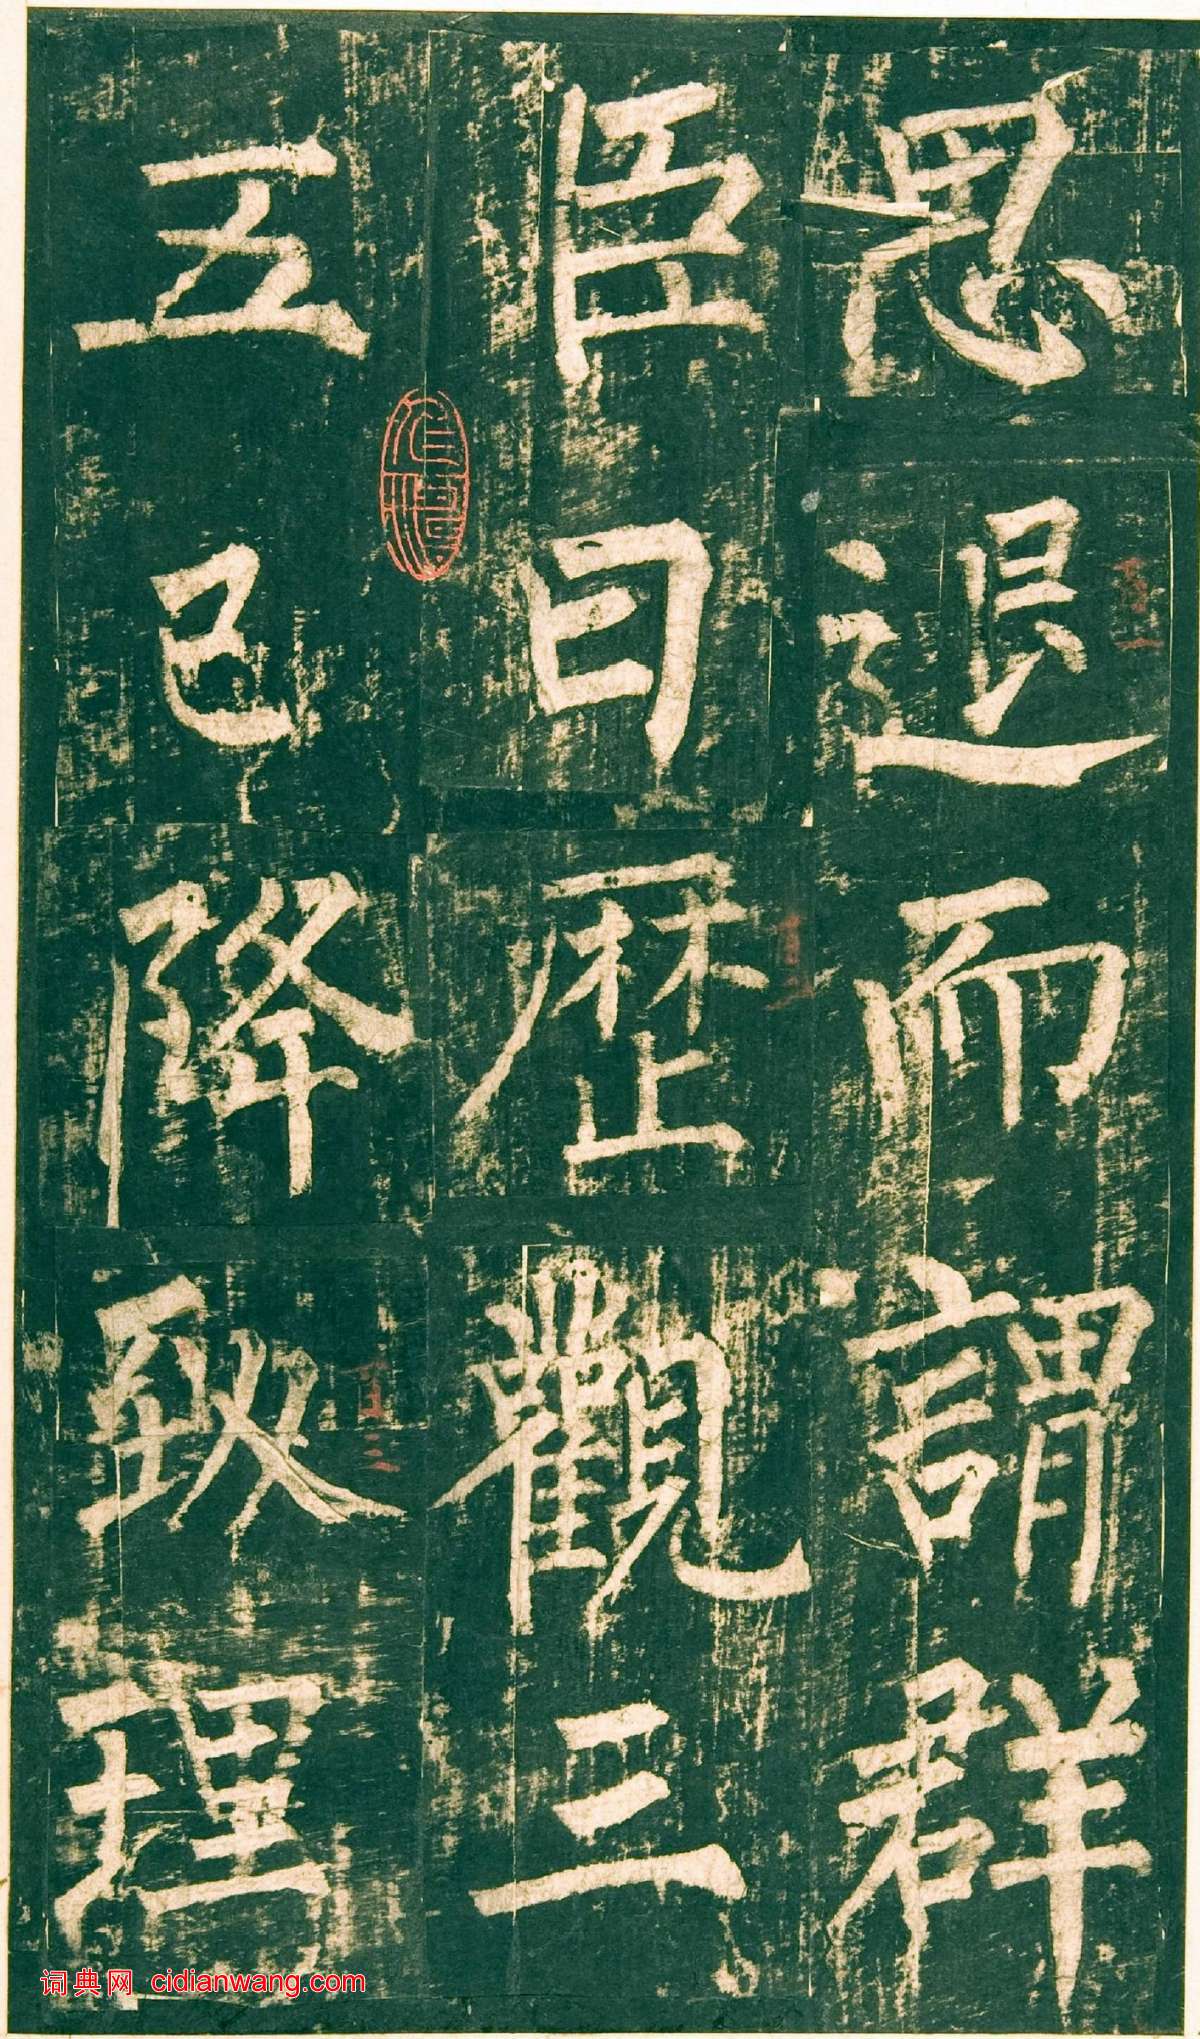 思退而謂群
臣曰歴觀三
五已降致理
词典网 cidianwang.com